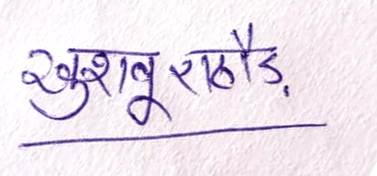 खुशबू राठौड़